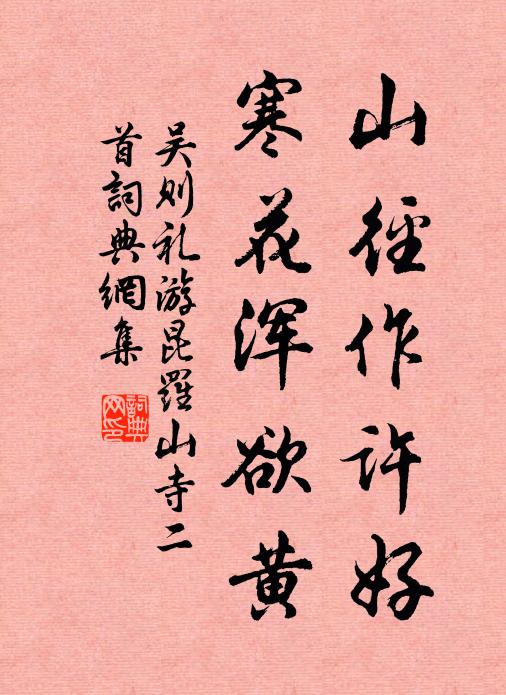 山徑作许好
寒花浑欲黄
吴则礼游昆羅山寺二
首詞典網集
詞典网印